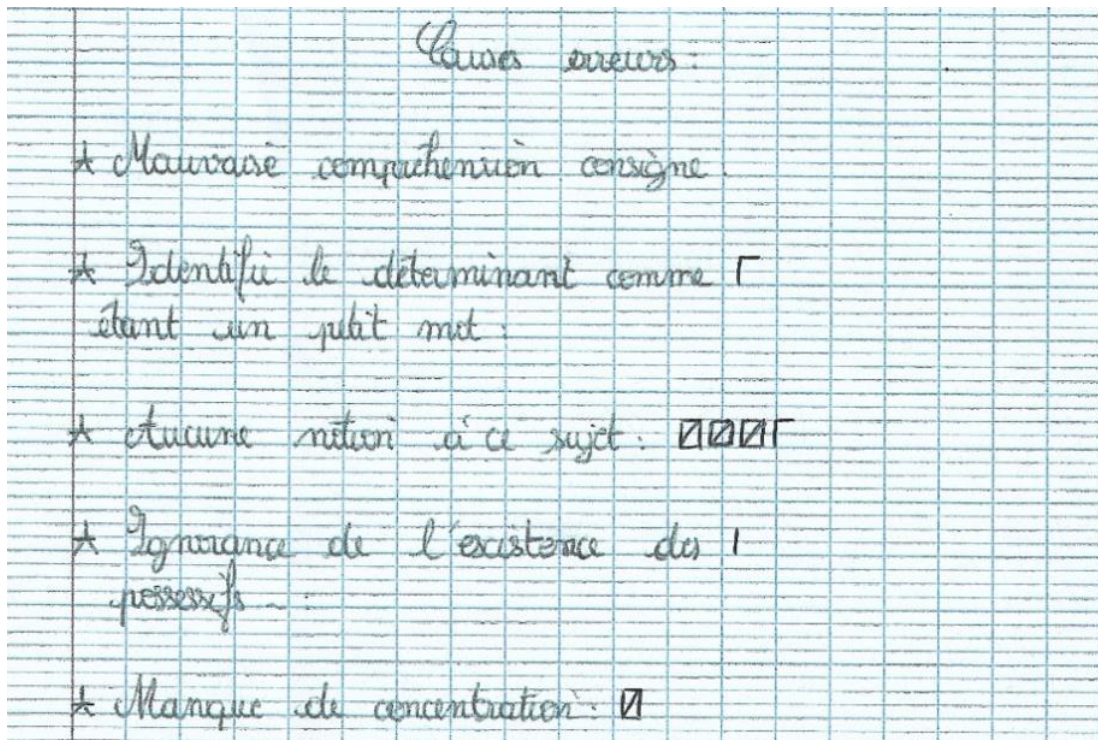 Causes erreurs :
★ Mauvaise compréhension consigne.
★ Identifie le déterminant comme
étant un petit mot :
★ Aucune notion à ce sujet :
★ Ignorance de l'existence des
possessifs - :
★ Manque de concentration :